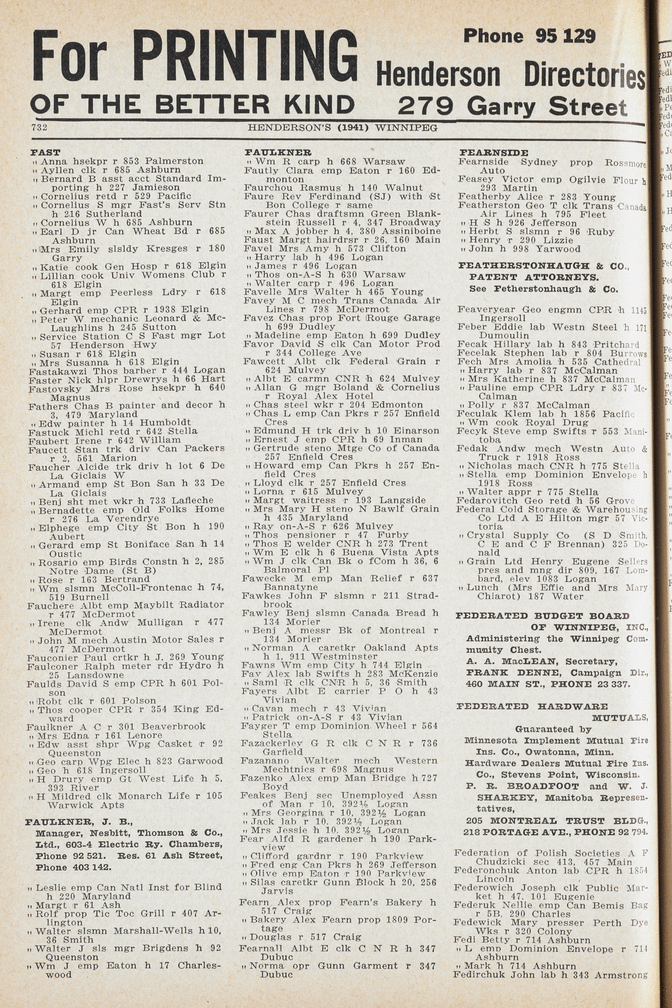 For PRINTING
OF THE BETTER KIND
Phone 95 129
Henderson Directories
279 Garry Street
732
HENDERSON'S (1941) WINNIPEG
FAST
" Anna hsekpr r 853 Palmerston
" Ayllen clk r 685 Ashburn
" Bernard B asst acct Standard Im-
porting h 227 Jamieson
" Cornelius retd r 529 Pacific
" Cornelius S mgr Fast's Serv Stn
h 216 Sutherland
" Cornelius W h 685 Ashburn
" Earl D jr Can Wheat Bd r 685
Ashburn
" Mrs Emily slsldy Kresges r 180
Garry
" Katie cook Gen Hosp r 618 Elgin
" Lillian cook Univ Womens Club r
618 Elgin
" Margt emp Peerless Ldry r 618
Elgin
" Gerhard emp CPR r 1938 Elgin
" Peter W mechanic Leonard & Mc-
Laughlins h 245 Sutton
" Service Station C S Fast mgr Lot
57 Henderson Hwy
" Susan r 618 Elgin
" Mrs Susanna h 618 Elgin
Fastakawzi Thos barber r 444 Logan
Faster Nick hlpr Drewrys h 66 Hart
Fastovsky Mrs Rose hsekpr h 640
Magnus
Fathers Chas B painter and decor h
3, 479 Maryland
" Edw painter h 14 Humboldt
Fastuck Michl retd r 642 Stella
Faubert Irene r 642 William
Faucett Stan trk driv Can Packers
r 2, 561 Marion
Faucher Alcide trk driv h lot 6 De
La Giclais W
" Armand emp St Bon San h 33 De
La Giclais
" Benj sht met wkr h 733 Lafleche
" Bernadette emp Old Folks Home
r 276 La Verendrye
" Elphege emp City St Bon h 190
Aubert
" Gerard emp St Boniface San h 14
Oustic
" Rosario emp Birds Constn h 2, 285
Notre Dame (St B)
" Rose r 163 Bertrand
" Wm slsmn McColl-Frontenac h 74,
519 Burnell
Fauchere Albt emp Maybilt Radiator
r 477 McDermot
" Irene clk Andw Mulligan r 477
McDermot
" John M mech Austin Motor Sales r
477 McDermot
Fauconier Paul crtkr h J, 269 Young
Faulconer Ralph meter rdr Hydro h
25 Lansdowne
Faulds David S emp CPR h 601 Pol-
son
" Robt clk r 601 Polson
" Thos cooper CPR r 354 King Ed-
ward
Faulkner A C r 301 Beaverbrook
" Mrs Edna r 161 Lenore
" Edw asst shpr Wpg Casket r 92
Queenston
" Geo carp Wpg Elec h 823 Garwood
" Geo h 618 Ingersoll
" H Drury emp Gt West Life h 5,
393 River
" H Mildred clk Monarch Life r 105
Warwick Apts
FAULKNER, J. B.,
Manager, Nesbitt, Thomson & Co.,
Ltd., 603-4 Electric Ry. Chambers,
Phone 92 521. Res. 61 Ash Street,
Phone 403 142.
" Leslie emp Can Natl Inst for Blind
h 220 Maryland
" Margt r 61 Ash
" Rolf prop Tic Toc Grill r 407 Ar-
lington
" Walter slsmn Marshall-Wells h 10,
36 Smith
" Walter J sls mgr Brigdens h 92
Queenston
" Wm J emp Eaton h 17 Charles-
wood
FAULKNER
" Wm R carp h 668 Warsaw
Fautly Clara emp Eaton r 160 Ed-
monton
Faurchou Rasmus h 140 Walnut
Faure Rev Ferdinand (SJ) with St
Bon College r same
Faurer Chas draftsmn Green Blank-
stein Russell r 4, 347 Broadway
" Max A jobber h 4, 380 Assiniboine
Faust Margt hairdrsr r 26, 160 Main
Favel Mrs Amy h 573 Clifton
" Harry lab h 496 Logan
" James r 496 Logan
" Thos on-A-S h 630 Warsaw
" Walter carp r 496 Logan
Favelle Mrs Walter h 465 Young
Favey M C mech Trans Canada Air
Lines r 798 McDermot
Favez Chas prop Fort Rouge Garage
h 699 Dudley
" Madeline emp Eaton h 699 Dudley
Favor David S clk Can Motor Prod
r 344 College Ave
Fawcett Albt clk Federal Grain r
624 Mulvey
" Albt E carmn CNR h 624 Mulvey
" Allan G mgr Boland & Cornelius
r Royal Alex Hotel
" Chas steel wkr r 204 Edmonton
" Chas L emp Can Pkrs r 257 Enfield
Cres
" Edmund H trk driv h 10 Einarson
" Ernest J emp CPR h 69 Inman
" Gertrude steno Mtge Co of Canada
257 Enfield Cres
" Howard emp Can Pkrs h 257 En-
field Cres
" Lloyd clk r 257 Enfield Cres
" Lorna r 615 Mulvey
" Margt waitress r 193 Langside
" Mrs Mary H steno N Bawlf Grain
h 435 Maryland
" Ray on-A-S r 626 Mulvey
" Thos pensioner r 47 Furby
" Thos E welder CNR h 273 Trent
" Wm E clk h 6 Buena Vista Apts
" Wm J clk Can Bk o fCom h 36, 6
Balmoral Pl
Fawecke M emp Man Relief r 637
Bannatyne
Fawkes John F slsmn r 211 Strad-
brook
Fawley Benj slsmn Canada Bread h
134 Morier
" Benj A messr Bk of Montreal r
134 Morier
" Norman A caretkr Oakland Apts
h 1, 911 Westminster
Fawns Wm emp City h 744 Elgin
Fay Alex lab Swifts h 283 McKenzie
" Saml R clk CNR h 5, 36 Smith
Fayers Albt E carrier P O h 43
Vivian
" Cavan mech r 43 Vivian
" Patrick on-A-S r 43 Vivian
Fayger T emp Dominion Wheel r 564
Stella
Fazackerley G R clk C N R r 736
Garfield
Fazanano Walter mech Western
Mechtnics r 698 Magnus
Fazenko Alex emp Man Bridge h 727
Boyd
Feakes Benj sec Unemployed Assn
of Man r 10, 392½ Logan
" Mrs Georgina r 10, 392½ Logan
" Jack lab r 10, 392½ Logan
" Mrs Jessie h 10, 392½ Logan
Fear Alfd R gardener h 190 Park-
view
" Clifford gardnr r 190 Parkview
" Fred eng Can Pkrs h 269 Jefferson
" Olive emp Eaton r 190 Parkview
" Silas caretkr Gunn Block h 20, 256
Jarvis
Fearn Alex prop Fearn's Bakery h
517 Craig
" Bakery Alex Fearn prop 1809 Por-
tage
" Douglas r 517 Craig
Fearnall Albt E clk C N R h 347
Dubuc
" Norma opr Gunn Garment r 347
Dubuc
FEARNSIDE
Fearnside Sydney prop Rossmore
Auto
Feasey Victor emp Ogilvie Flour h
293 Martin
Featherby Alice r 283 Young
Featherston Geo T clk Trans Canada
Air Lines h 795 Fleet
" H S h 926 Jefferson
" Herbt S slsmn r 96 Ruby
" Henry r 290 Lizzie
" John h 998 Yarwood
FEATHERSTONHAUGH & CO.,
PATENT ATTORNEYS.
See Fetherstonhaugh & Co.
Feaveryear Geo engmn CPR h 1145
Ingersoll
Feber Eddie lab Westn Steel h 171
Dumoulin
Fecak Hillary lab h 843 Pritchard
Fecelak Stephen lab r 804 Burrows
Fech Mrs Amolia h 535 Cathedral
" Harry lab r 837 McCalman
" Mrs Katherine h 837 McCalman
" Pauline emp CPR Ldry r 837 Mc-
Calman
" Polly r 837 McCalman
Feculak Klem lab h 1856 Pacific
" Wm cook Royal Drug
Fecyk Steve emp Swifts r 553 Mani-
toba
Fedak Andw mech Westn Auto &
Truck r 1918 Ross
" Nicholas mach CNR h 775 Stella
" Stella emp Dominion Envelope h
1918 Ross
" Walter appr r 775 Stella
Fedarovitch Geo retd h 56 Grove
Federal Cold Storage & Warehousing
Co Ltd A E Hilton mgr 57 Vic-
toria
" Crystal Supply Co (S D Smith,
C E and C F Brennan) 325 Do-
nald
" Grain Ltd Henry Eugene Sellers
pres and mng dir 809, 167 Lom-
bard, elev 1083 Logan
" Lunch (Mrs Effie and Mrs Mary
Chiarot) 187 Water
FEDERATED BUDGET BOARD
OF WINNIPEG, INC.,
Administering the Winnipeg Com-
munity Chest.
A. A. MacLEAN, Secretary,
FRANK DENNE, Campaign Dir.,
460 MAIN ST., PHONE 23 337.
FEDERATED HARDWARE
MUTUALS,
Guaranteed by
Minnesota Implement Mutual Fire
Ins. Co., Owatonna, Minn.
Hardware Dealers Mutual Fire Ins.
Co., Stevens Point, Wisconsin.
P. R. BROADFOOT and W. J.
SHARKEY, Manitoba Represen-
tatives,
205 MONTREAL TRUST BLDG.,
218 PORTAGE AVE., PHONE 92 794.
Federation of Polish Societies A F
Chudzicki sec 413, 457 Main
Federonchuk Anton lab CPR h 1854
Lincoln
Federowich Joseph clk Public Mar-
ket h 47, 101 Eugenie
Federuk Nellie emp Can Bemis Bag
r 5B, 290 Charles
Fedewick Mary presser Perth Dye
Wks r 320 Colony
Fedi Betty r 714 Ashburn
" L emp Dominion Envelope r 714
Ashburn
" Mark h 714 Ashburn
Fedirchuk John lab h 343 Armstrong